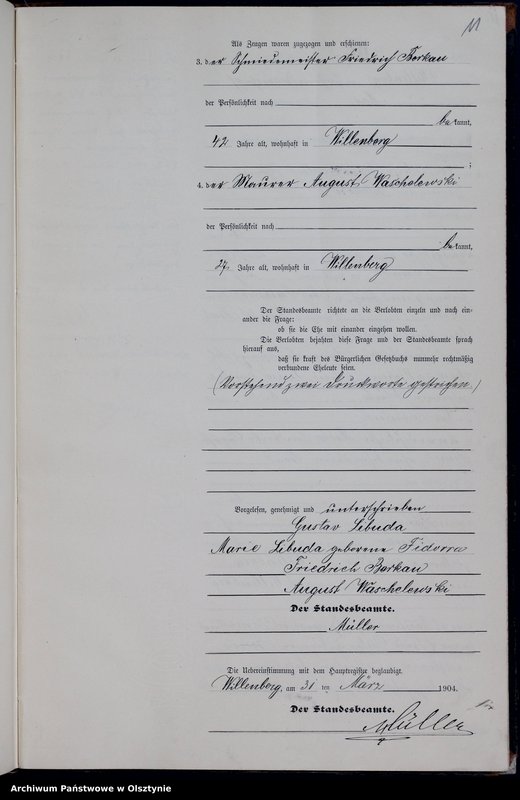 Als Zeugen waren zugezogen und erschienen:
3. der Schmiedemeister Friedrich Borkau
der Persönlichkeit nach
be kannt,
42 Jahre alt, wohnhaft in Willenberg
;
4. der Maurer August Waschelewski
der Persönlichkeit nach
be kannt,
27 Jahre alt, wohnhaft in Willenberg
Der Standesbeamte richtete an die Verlobten einzeln und nach ein-
ander die Frage:
ob sie die Ehe mit einander eingehen wollen.
Die Verlobten bejahten diese Frage und der Standesbeamte sprach
hierauf aus,
daß sie kraft des Bürgerlichen Gesetzbuchs nunmehr rechtmäßig
verbundene Eheleute seien.
(Vorstehend zwei Druckworte gestrichen.)
Vorgelesen, genehmigt und unterschrieben
Gustav Libuda
Marie Libuda geborene Fidorra
Friedrich Borkau
August Waschelewski
Der Standesbeamte.
Müller
Die Uebereinstimmung mit dem Hauptregister beglaubigt.
Willenberg, am 31 ten März 1904.
Der Standesbeamte.
Müller
Archiwum Państwowe w Olsztynie